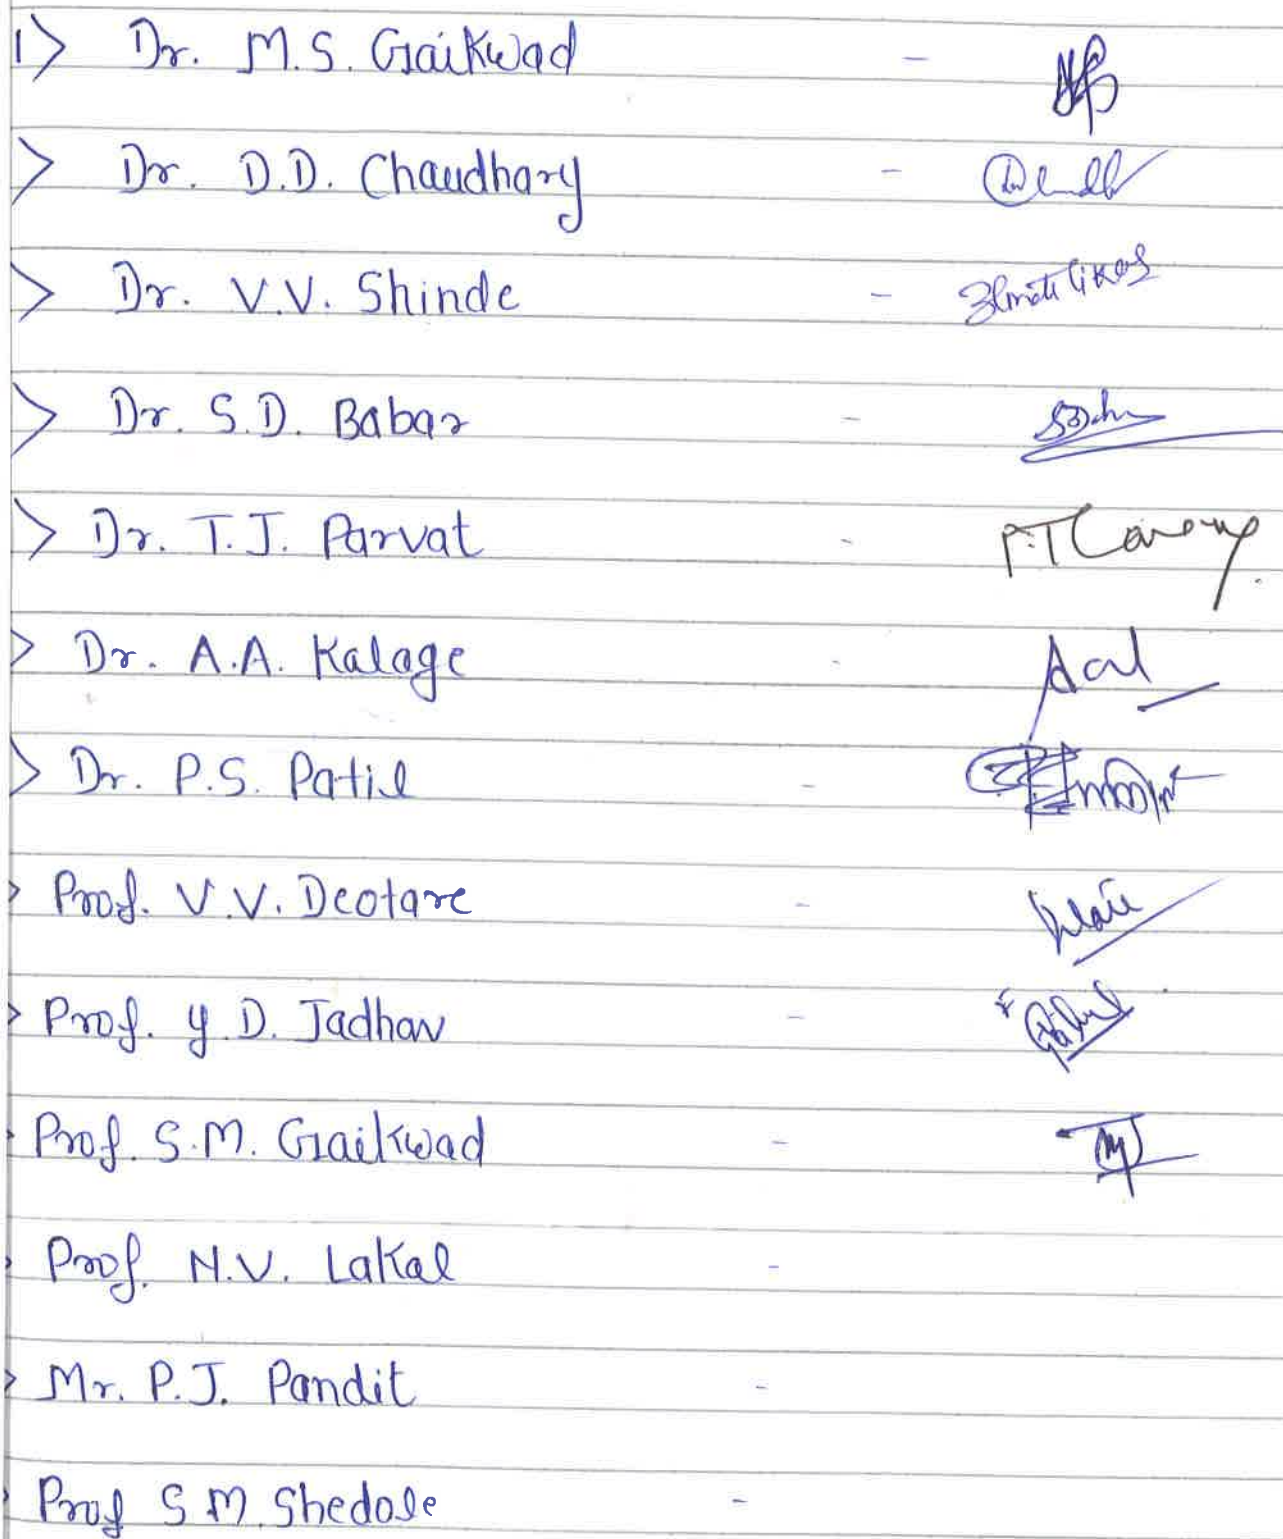 1> Dr. M.S. Gaikwad -
> Dr. D.D. Chaudhary -
> Dr. V.V. Shinde -
> Dr. S.D. Babar -
> Dr. T.J. Parvat -
> Dr. A.A. Kalage -
> Dr. P.S. Patil -
> Prof. V.V. Deotare -
> Prof. Y.D. Jadhav -
Prof. S.M. Gaikwad -
Prof. N.V. Lakal -
> Mr. P.J. Pandit -
Prof S M. Shedole -